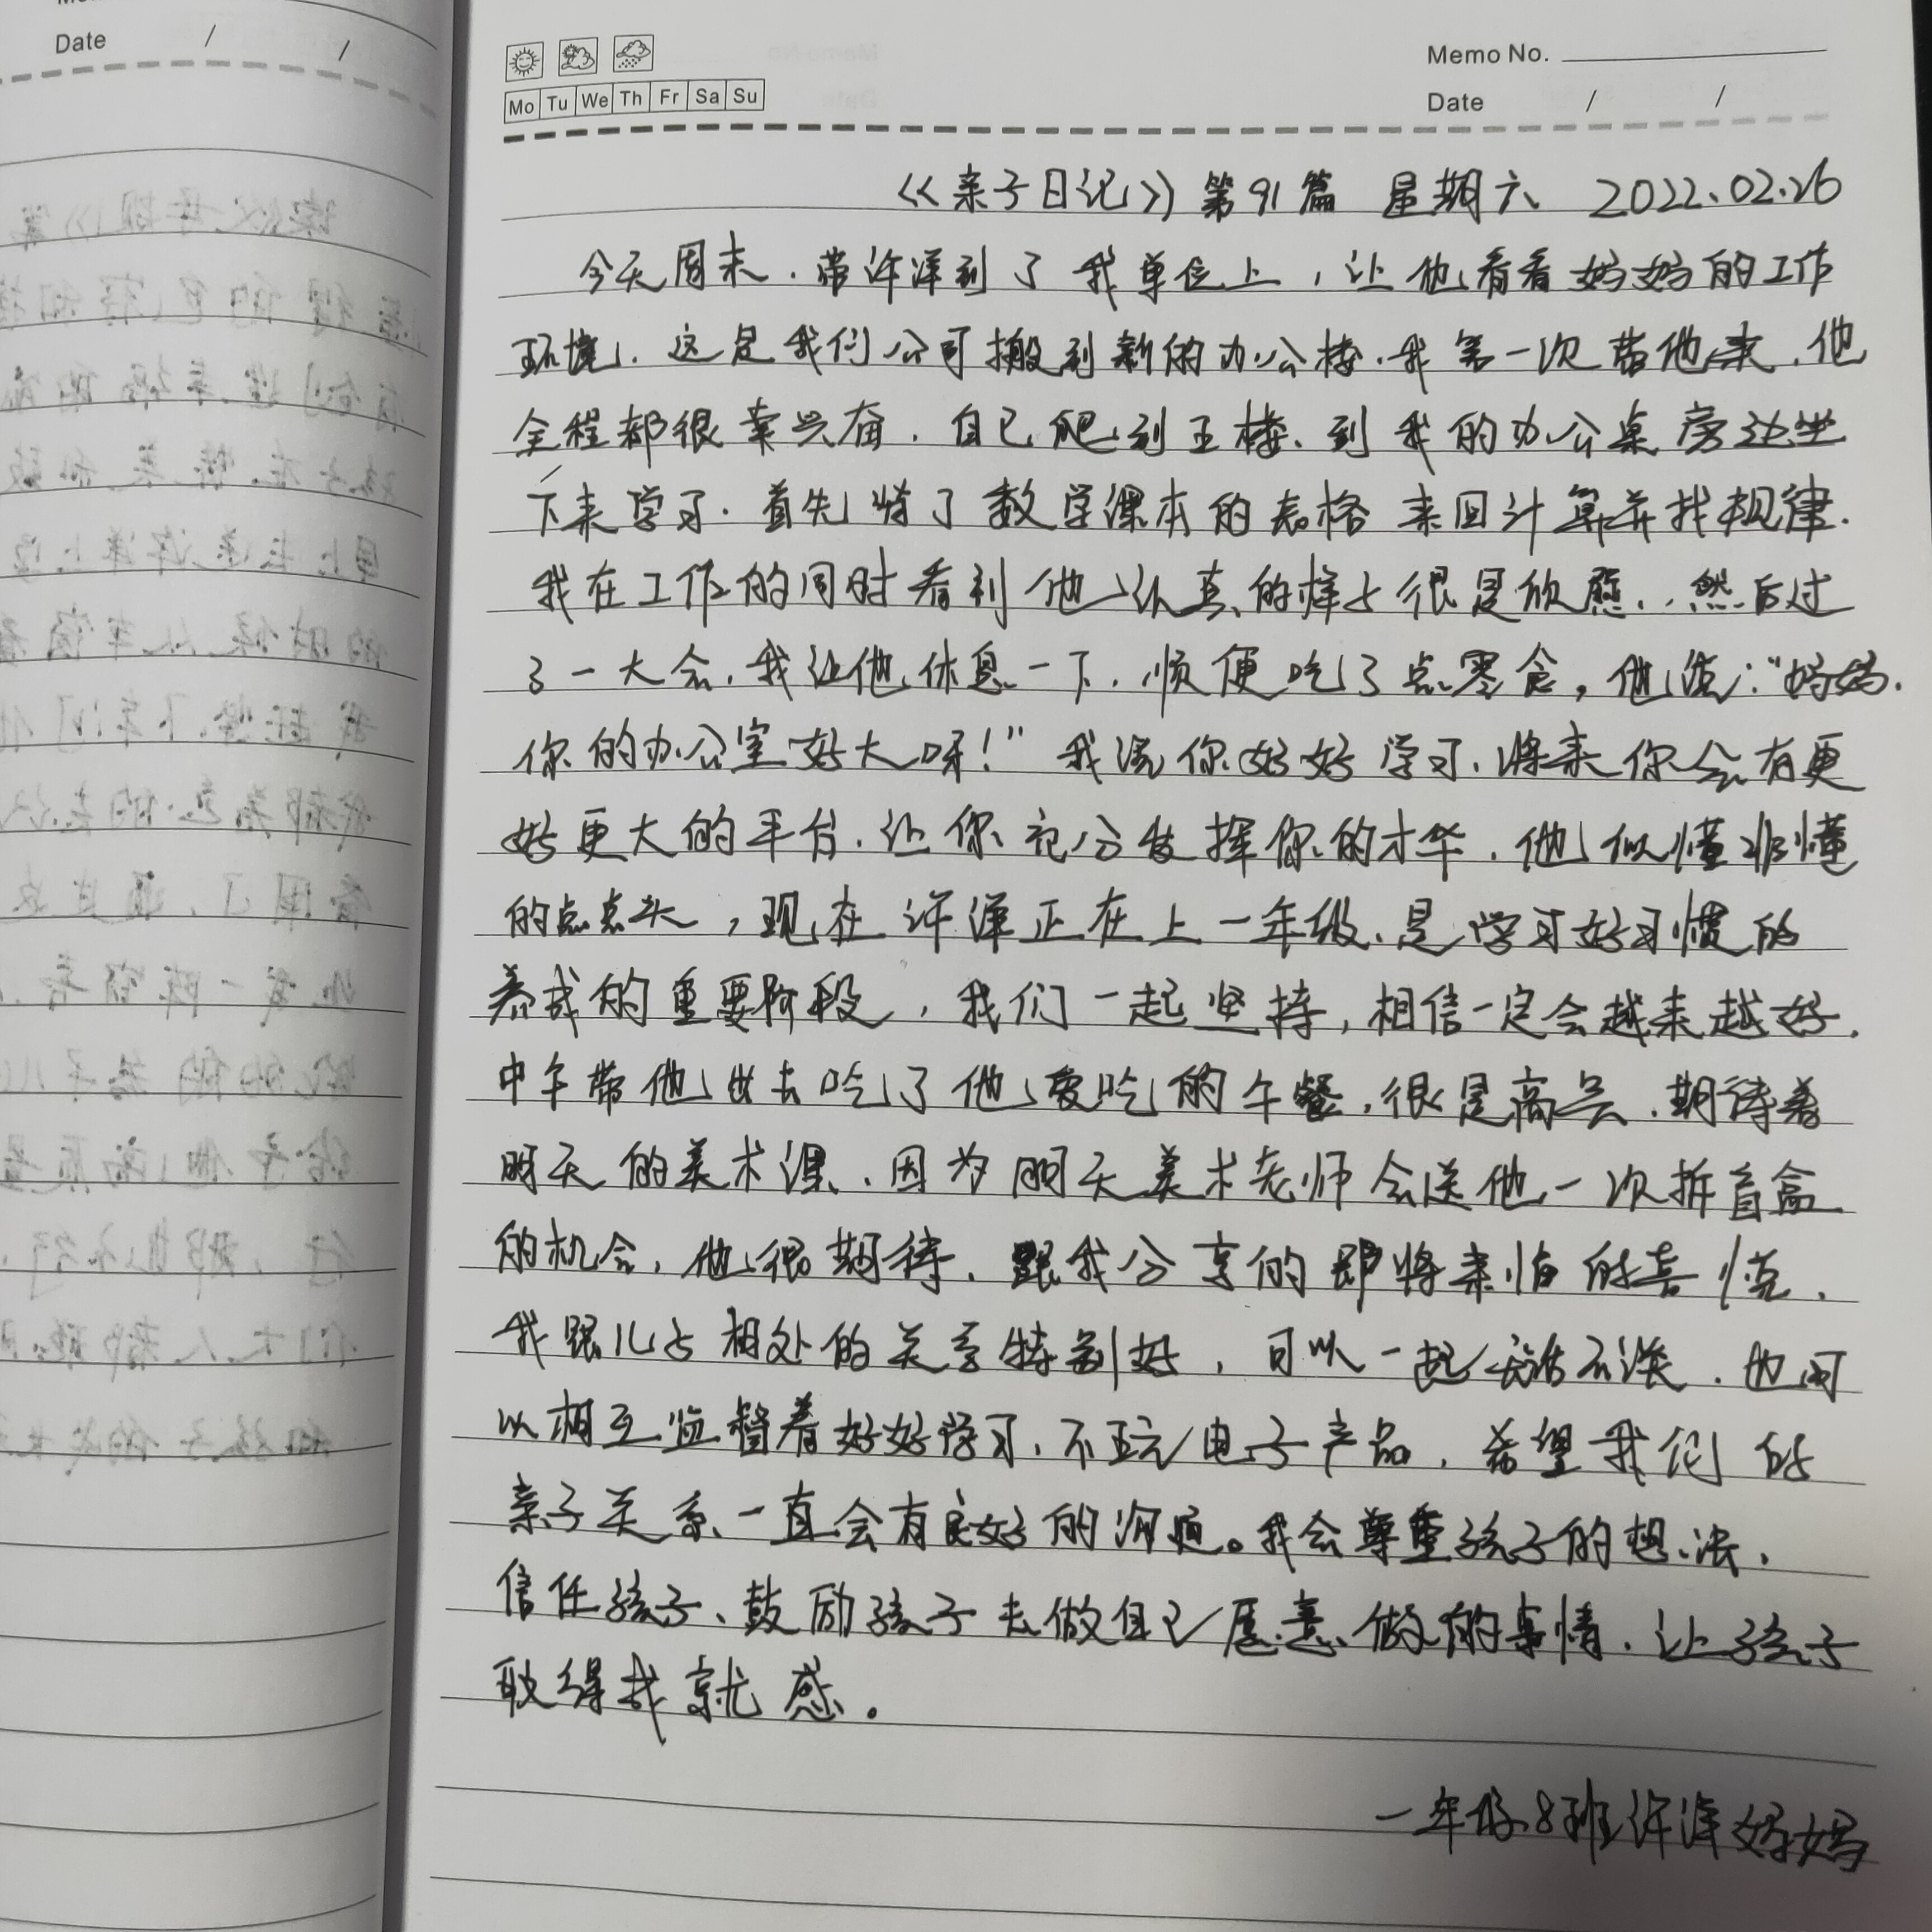 Date / /
Memo No.
Mo Tu We Th Fr Sa Su
Date / /
《亲子日记》第91篇 星期六 2022.02.26
今天周末,带许泽到了我单位上,让他看看妈妈的工作
环境,这是我们公司搬到新的办公楼,我第一次带他来,他
全程都很兴奋,自己爬到五楼,到我的办公桌旁边坐
下来学习.首先将了数学课本的表格来回计算并找规律.
我在工作的同时看到他认真的样子很是欣慰,然后过
了一大会,我让他休息一下,顺便吃了点零食,他说:"妈妈,
你的办公室好大呀!"我说你好好学习,将来你会有更
好更大的平台,让你充分发挥你的才华,他似懂非懂
的点点头,现在许泽正在上一年级,是学习好习惯的
养成的重要阶段,我们一起坚持,相信一定会越来越好.
中午带他出去吃了他爱吃的午餐,很是高兴,期待着
明天的美术课,因为明天美术老师会送他一次拆盲盒
的机会,他很期待,跟我分享的即将来临的喜悦,
我跟儿子相处的关系特别好,可以一起无话不谈,也可
以相互监督着好好学习,不玩电子产品,希望我们的
亲子关系一直会有良好的沟通。我会尊重孩子的想法,
信任孩子、鼓励孩子去做自己愿意做的事情,让孩子
取得成就感。
一年级8班许泽妈妈